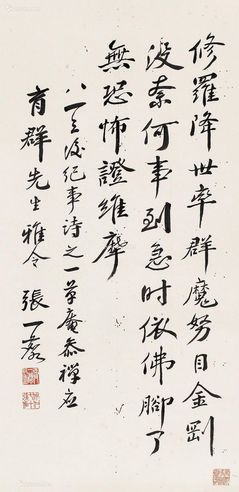 修羅降世率群魔努目金剛
没奈何事到急时依佛腳了
無恐怖證維摩
八一三後紀事詩之一草庵恭禪应
育群先生雅令 張一麐